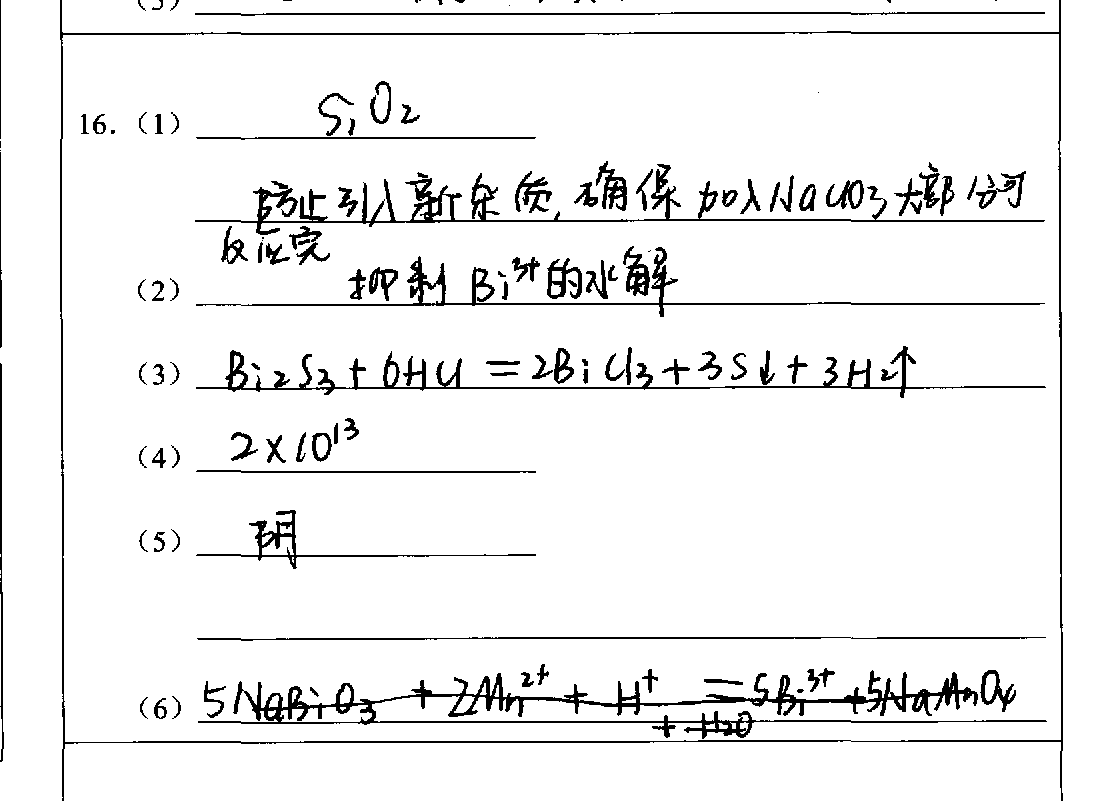 16.（1） SiO2
防止引入新杂质，确保加入NaClO3大部分可
反应完
（2） 抑制 Bi³⁺的水解
（3） Bi2S3 + 6HCl = 2BiCl3 + 3S↓ + 3H2↑
（4） 2×10¹³
（5） 阴
（6） 5NaBiO3 + 2Mn²⁺ + H⁺ = 5Bi³⁺ + 5NaMnO4
+ H2O